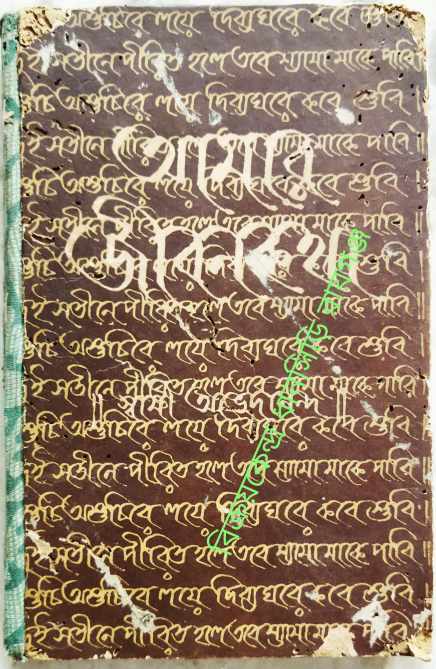 অশুচিরে লয়ে দিব্যঘরে কবে শুবি
দুই সতীনে পীরিত হলে তবে শ্যামা মাকে পাবি॥
শুচি অশুচিরে লয়ে দিব্যঘরে কবে শুবি।
দুই সতীনে পীরিত শ্যামা মাকে পাবি॥
আমার
শুচি অশুচিরে লয়ে দিব্যঘরে কবে শুবি
দুই সতীনে পীরিত হলে তবে শ্যামা মাকে পাবি॥
জীবনকথা
শুচি শুবি
দুই সতীনে পীরিত হলে তবে শ্যামা মাকে পাবি॥
শুচি অশুচিরে লয়ে দিব্যঘরে কবে শুবি
দুই সতীনে পীরিত হলে তবে শ্যামা মাকে পাবি
॥ স্বামী অভেদানন্দ ॥
শুচি অশুচিরে লয়ে দিব্যঘরে কবে শুবি
দুই সতীনে পীরিত হলে তবে শ্যামা মাকে পাবি॥
শুচি অশুচিরে লয়ে দিব্যঘরে কবে শুবি।
দুই সতীনে পীরিত হলে তবে শ্যামা মাকে পাবি॥
শুচি অশুচিরে লয়ে দিব্যঘরে কবে শুবি
দুই সতীনে পীরিত হলে তবে শ্যামা মাকে পাবি॥
বিক্রয়কেন্দ্র